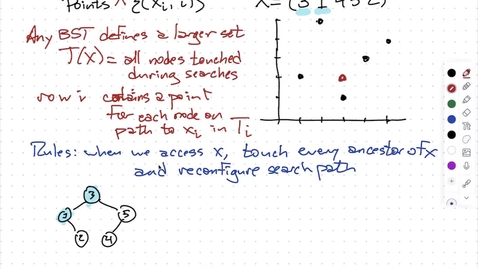 Points X {(xi, i)} X = (3 1 4 5 2)
Any BST defines a larger set
T(X) = all nodes touched
during searches
row i contains a point
for each node on
path to xi in Ti
Rules: when we access x, touch every ancestor of x
and reconfigure search path
3
5
2 4